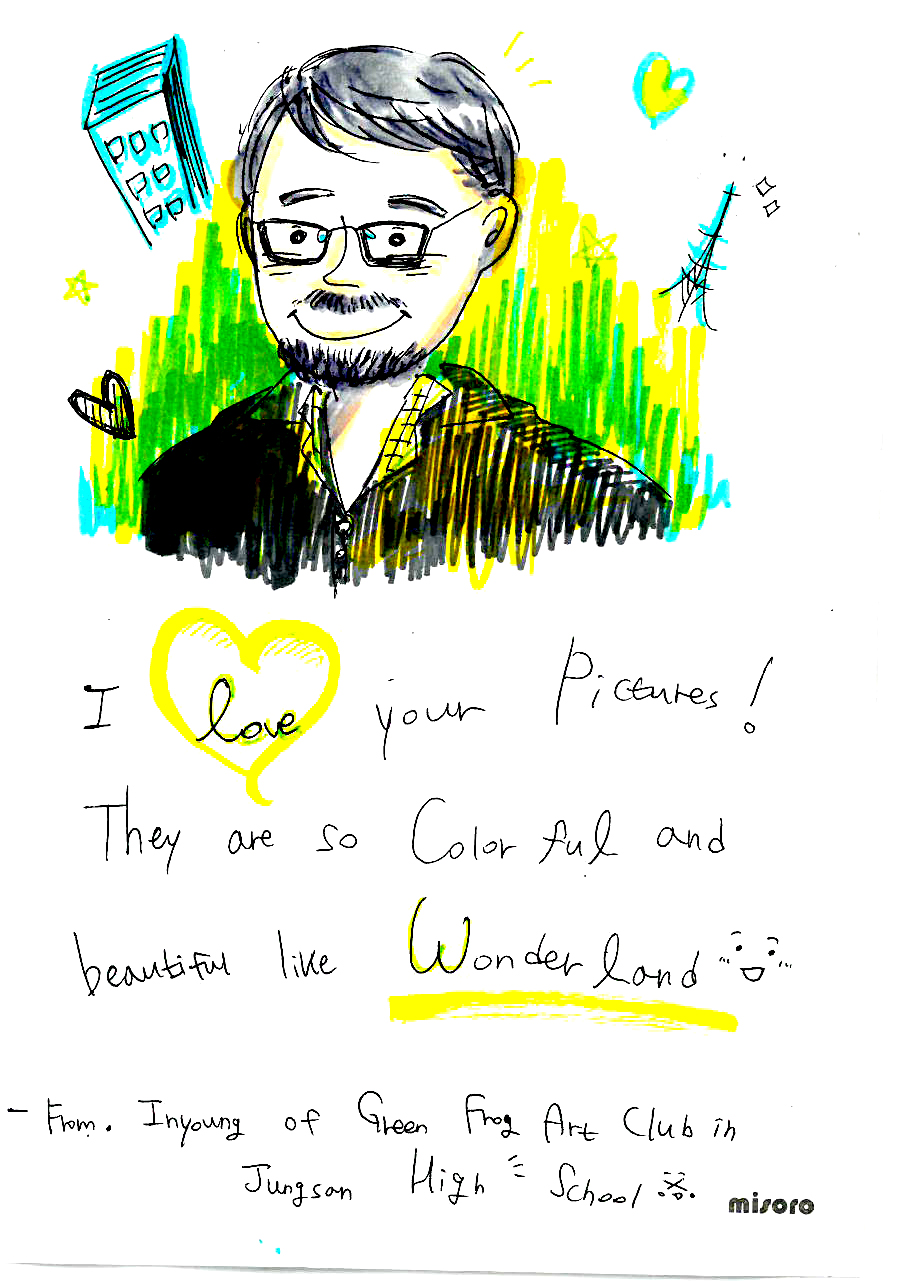 I love your Pictures!
They are so Colorful and
beautiful like Wonderland
- From. Inyoung of Green Frog Art Club in
Jungsan High School
misoro